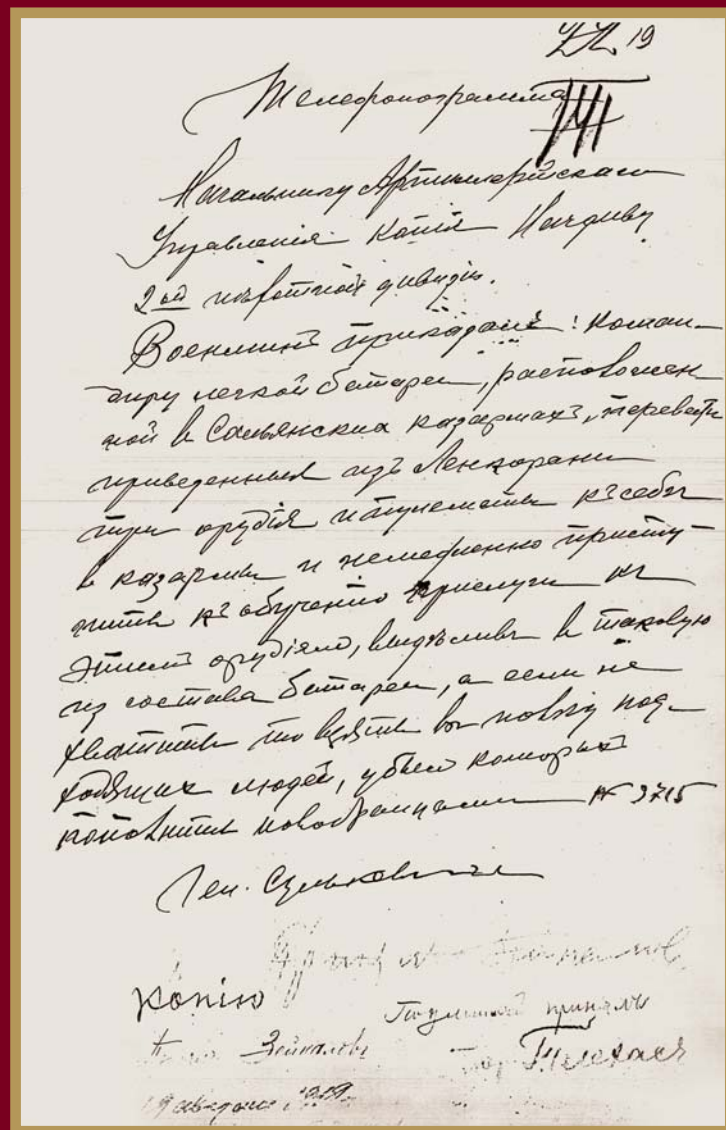 19
Телефонограмма
Начальнику Артиллерійскаго
Управленія. Копія Начдиву
2ой пѣхотной дивизіи.
Военминъ приказалъ: коман-
диру легкой батареи, расположен
ной в Сальянских казармахъ, перевезти
приведенныя изъ Ленкорани
три орудія и пулеметы къ себѣ
в казармы и немедленно присту
пить къ обученію прислуги къ
этимъ орудіямъ, выдѣливъ в таковую
из состава батареи, а если не
хватитъ то взять
ходящих людей, убыль которыхъ
пополнить новобранцами № 3715
Ген. Сулькевичъ
Копію
Подлинный принялъ
Зейналовъ
19